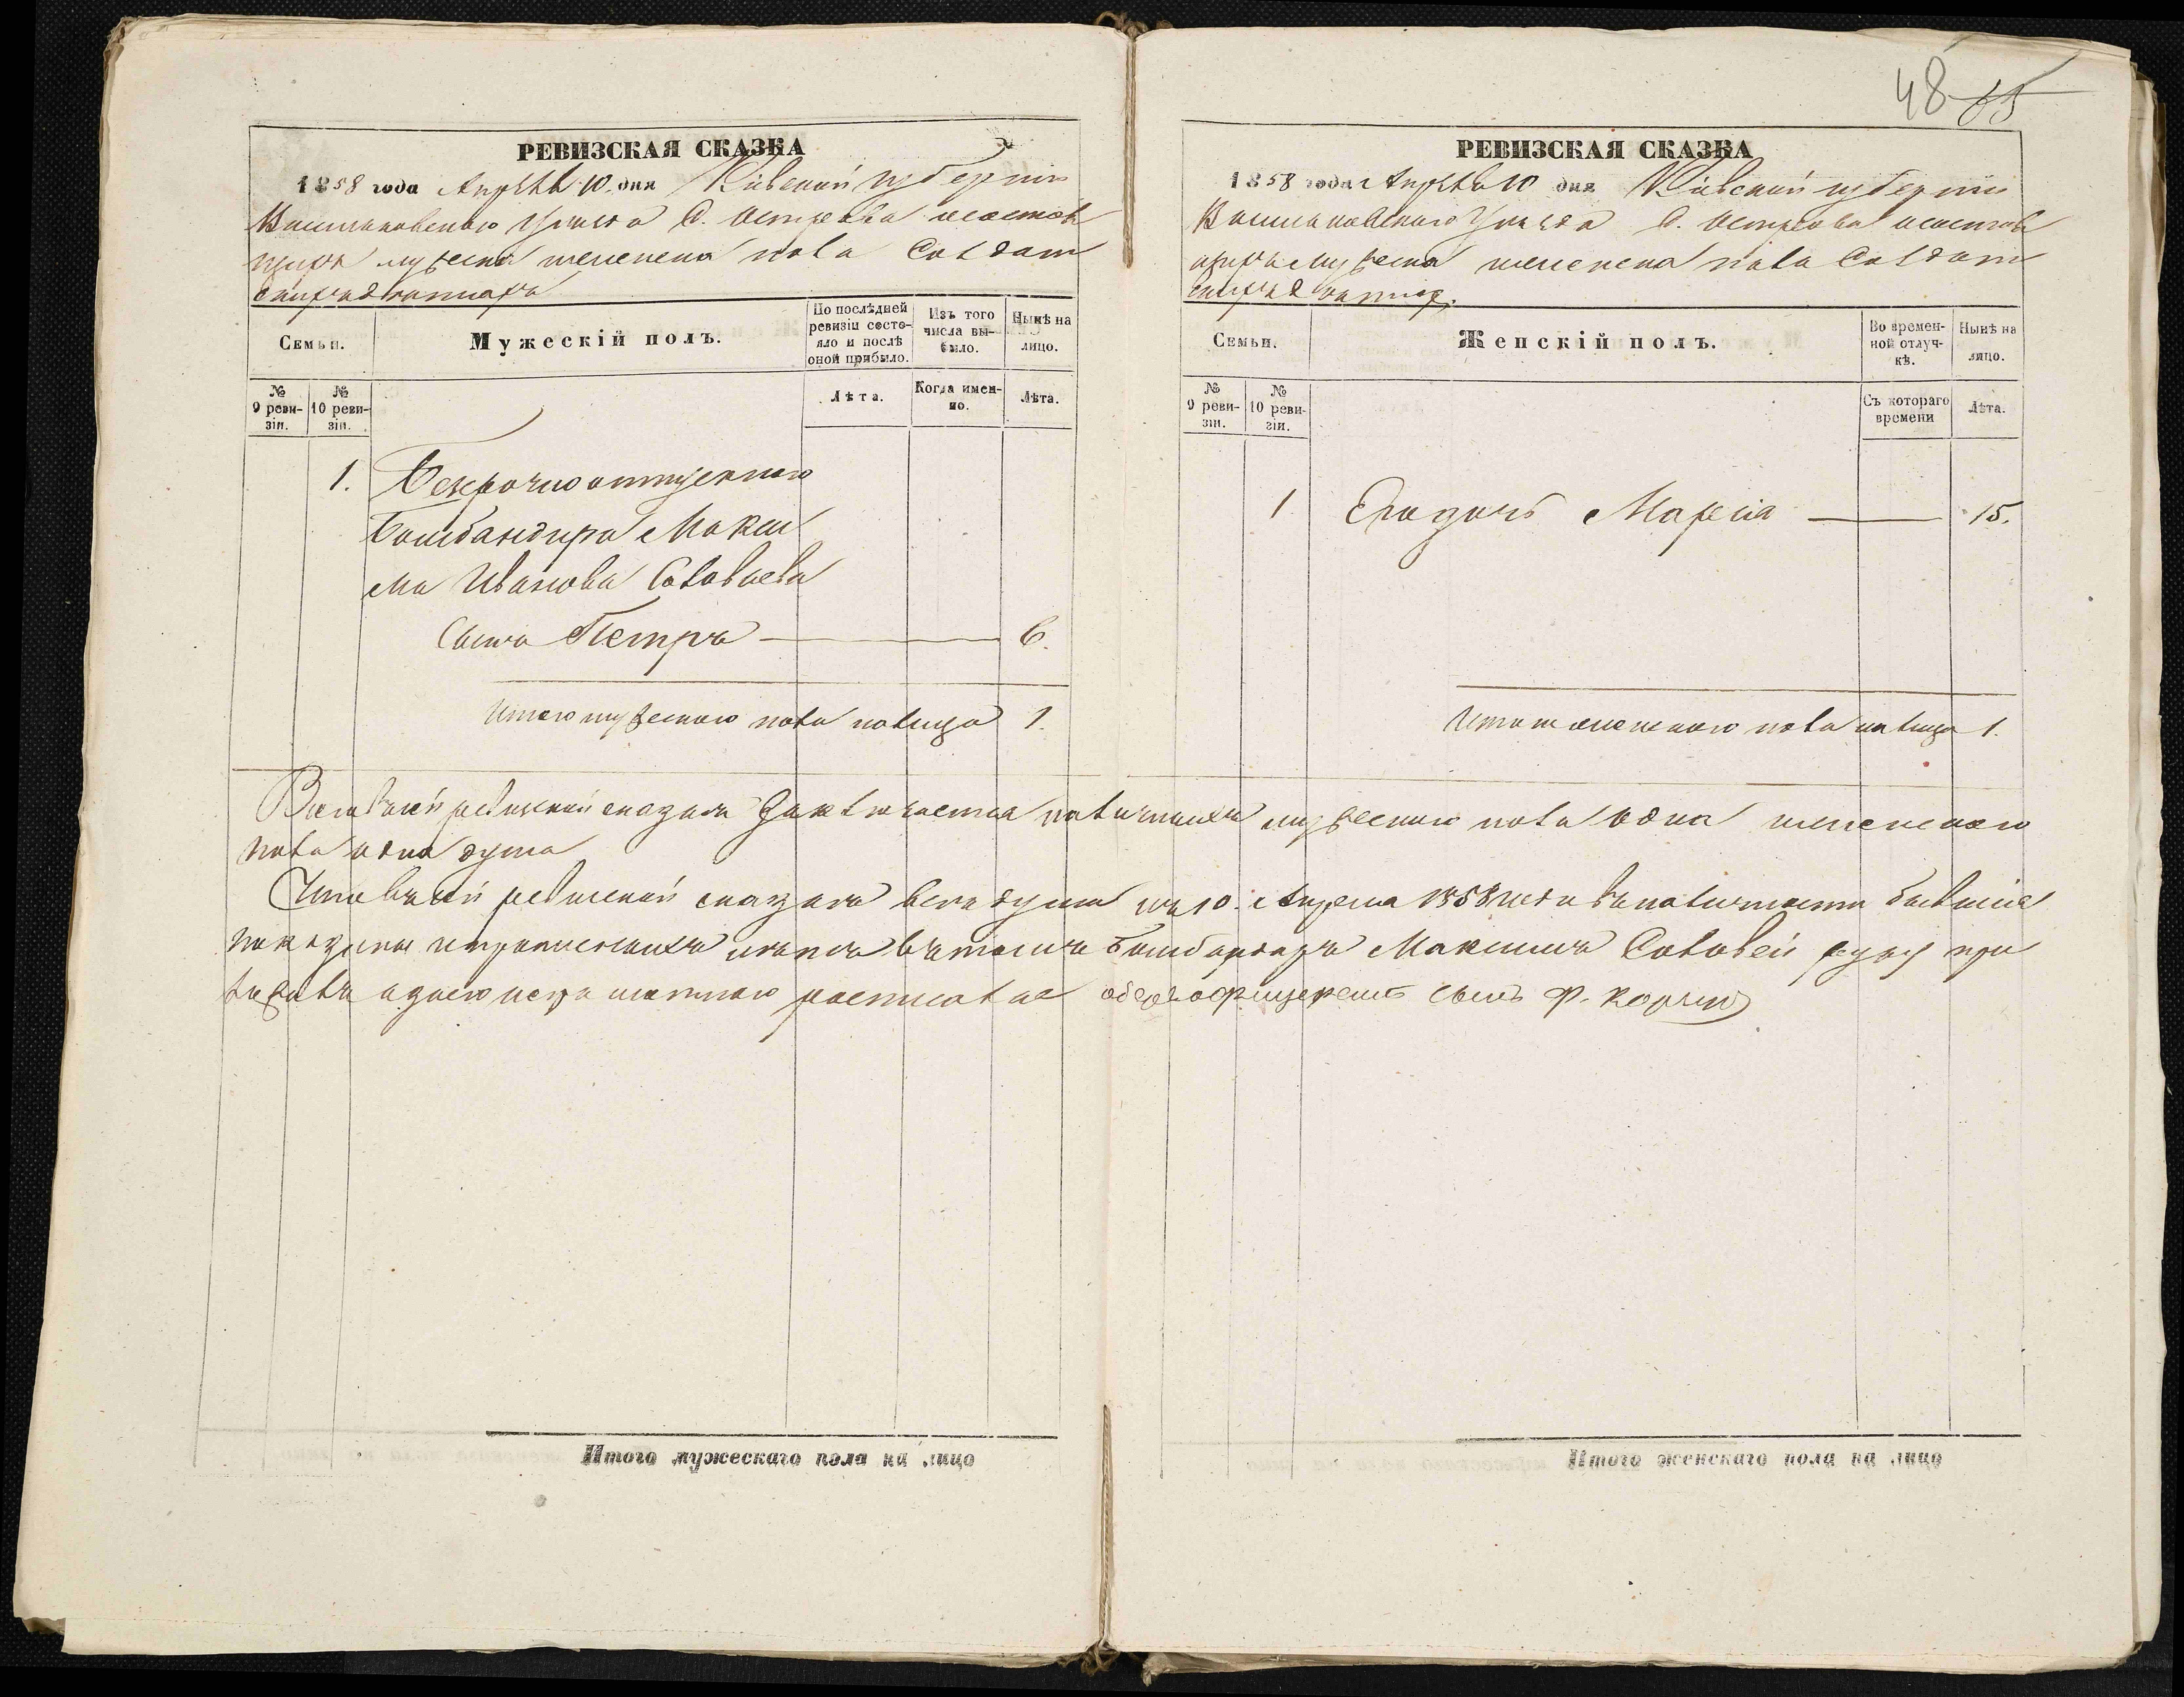 48 55
РЕВИЗСКАЯ СКАЗКА
1858 года Апрѣля 10 дня Кіевской губерніи
Васильковскаго уѣзда С. Острова о состоя
щихъ мужеска женска пола Солдат
скихъ дѣтяхъ
Семьи.
Мужескій полъ.
По послѣдней ревизіи состояло и послѣ оной прибыло.
Изъ того числа выбыло.
Нынѣ на лицо.
№ 9 ревизіи.
№ 10 ревизіи.
Лѣта.
Когда именно.
Лѣта.
1. Безсрочно отпускнаго
Бомбандира Макси
ма Иванова Соловьева
Сынъ Петръ 6.
Итого мужескаго пола налицо 1.
РЕВИЗСКАЯ СКАЗКА
1858 года Апрѣля 10 дня Кіевской губерніи
Васильковскаго уѣзда С. Острова о состоя
щихъ мужеска женска пола Солдат
скихъ
Семьи.
Женскій полъ.
Во временной отлучкѣ.
Нынѣ на лицо.
№ 9 ревизіи.
№ 10 ревизіи.
Съ котораго времени
Лѣта.
1 Его дочь Марія 15.
Итого женскаго пола налицо 1.
Въ сей ревизской сказкѣ заключается наличныхъ мужескаго пола одна женскаго
пола одна душа
Что въ сей ревизской сказкѣ всѣ души по 10. Апреля 1858 года въ наличности бывшія
показаны и прописныхъ нѣтъ въ томъ бомбардиръ Максимъ Соловей руку при
ложилъ а за него неграмотнаго росписался оберъ офицерскій сынъ Ф.
Итого мужескаго пола на лицо
Итого женскаго пола на лицо